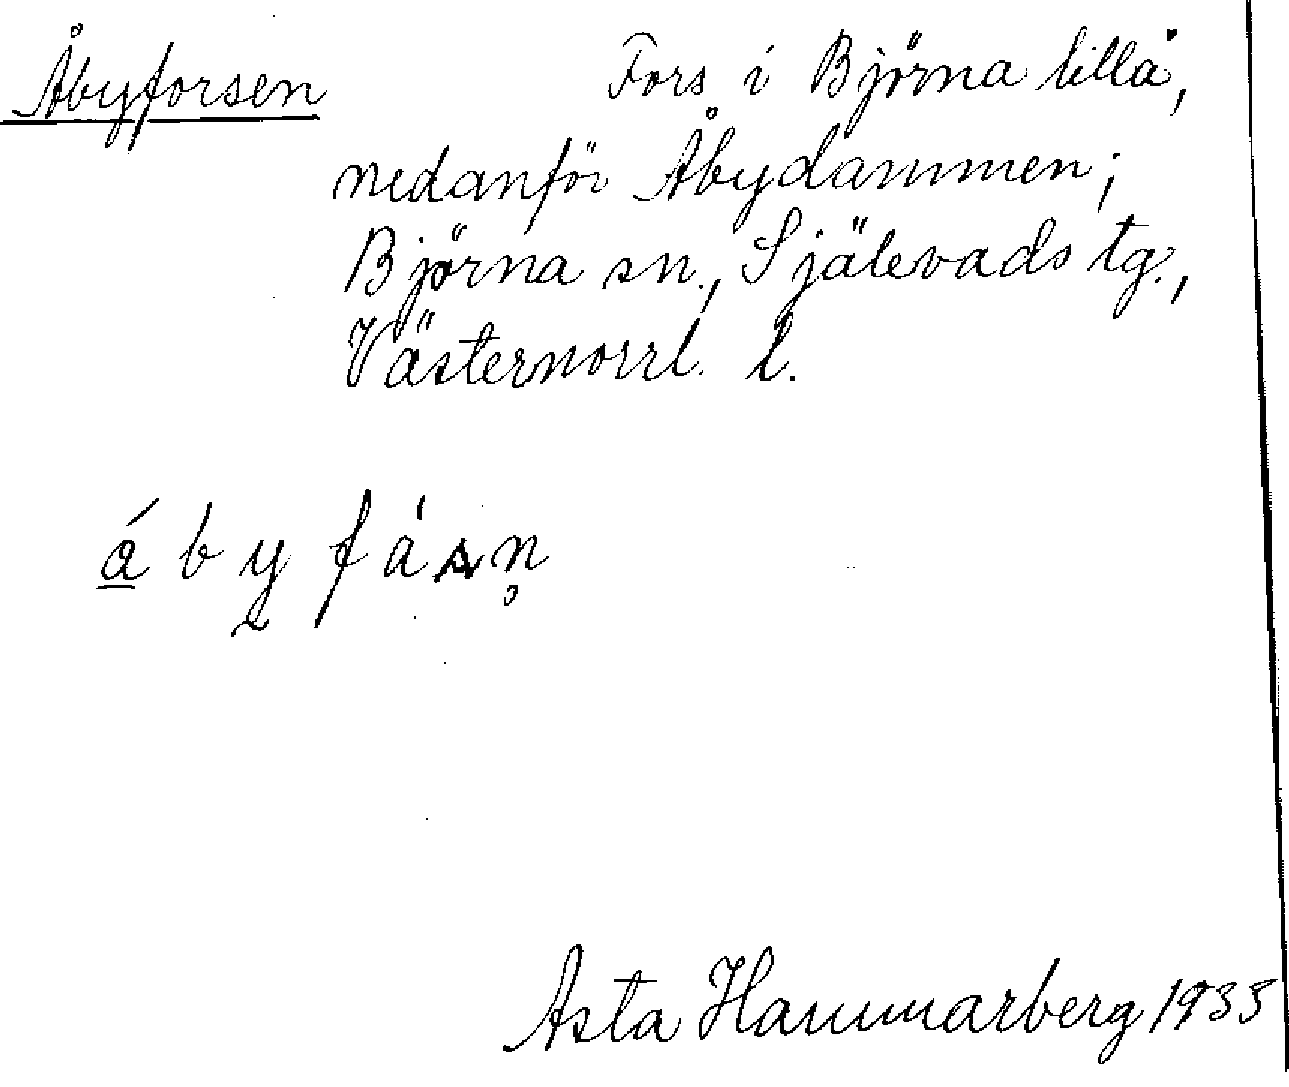 Åbyforsen Fors i Björna lillå,
nedanför Åbydammen;
Björna sn., Själevads tg.,
Västernorrl. l.
á b y f á s n̥
Asta Hammarberg 1935